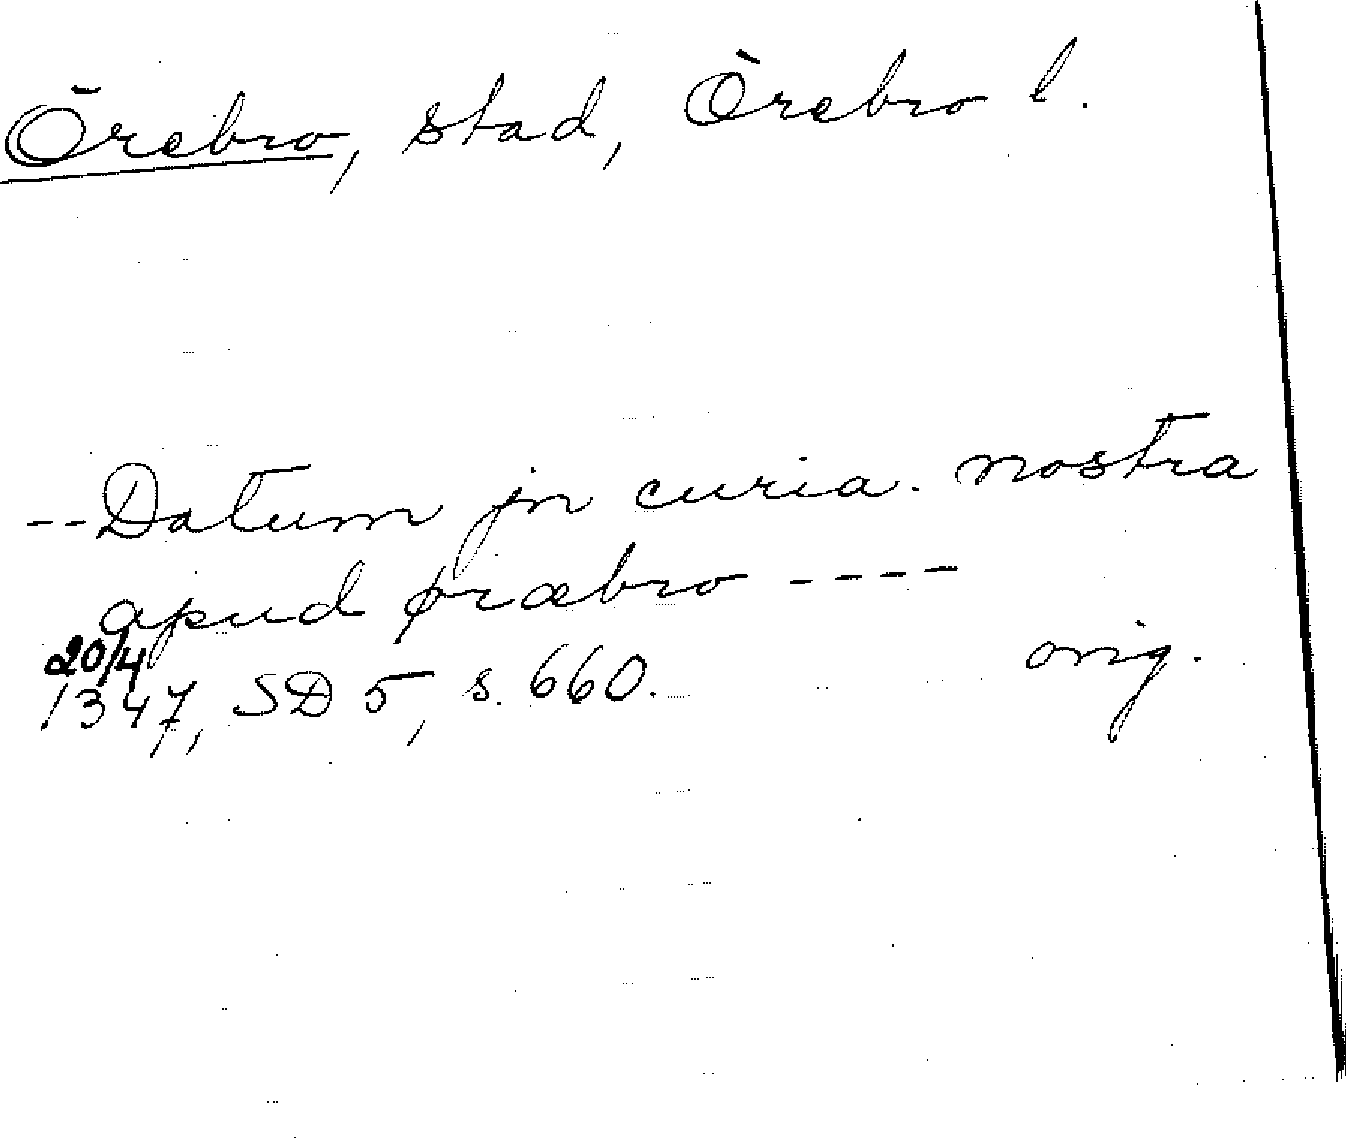 Örebro, stad, Örebro l.
-- Datum jn curia. nostra
apud øræbro ----
20/4
1347, SD 5, s. 660. orig.